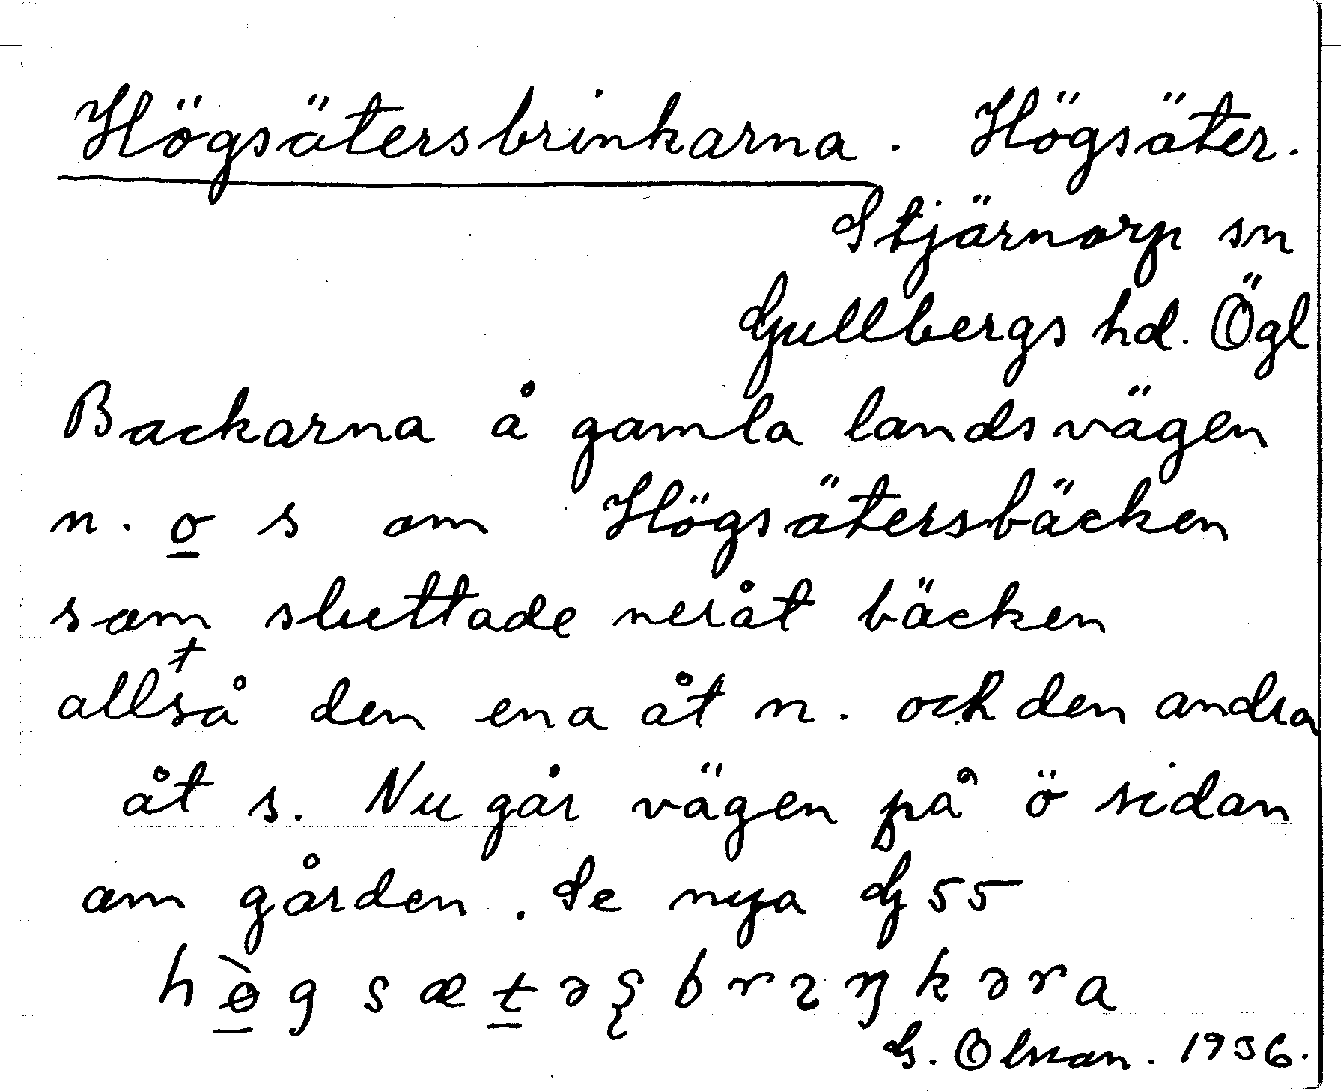 Högsätersbrinkarna. Högsäter.
Stjärnorp sn
Gullbergs hd. Ögl
Backarna å gamla landsvägen
n. o s om Högsätersbäcken
som sluttade neråt bäcken
alltså den ena åt n. och den andra
åt s. Nu går vägen på ö sidan
om gården. Se nya G 55
hø̀gsætəʂbrɪŋkəra
G. Olsson. 1936.